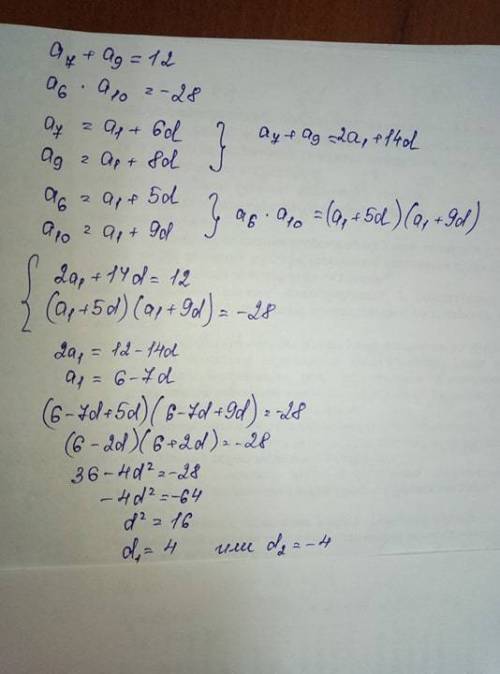 a₇ + a₉ = 12
a₆ · a₁₀ = -28
a₇ = a₁ + 6d
a₉ = a₁ + 8d } a₇ + a₉ = 2a₁ + 14d
a₆ = a₁ + 5d
a₁₀ = a₁ + 9d } a₆ · a₁₀ = (a₁ + 5d)(a₁ + 9d)
{ 2a₁ + 14d = 12
(a₁ + 5d)(a₁ + 9d) = -28
2a₁ = 12 - 14d
a₁ = 6 - 7d
(6 - 7d + 5d)(6 - 7d + 9d) = -28
(6 - 2d)(6 + 2d) = -28
36 - 4d² = -28
-4d² = -64
d² = 16
d₁ = 4 или d₂ = -4